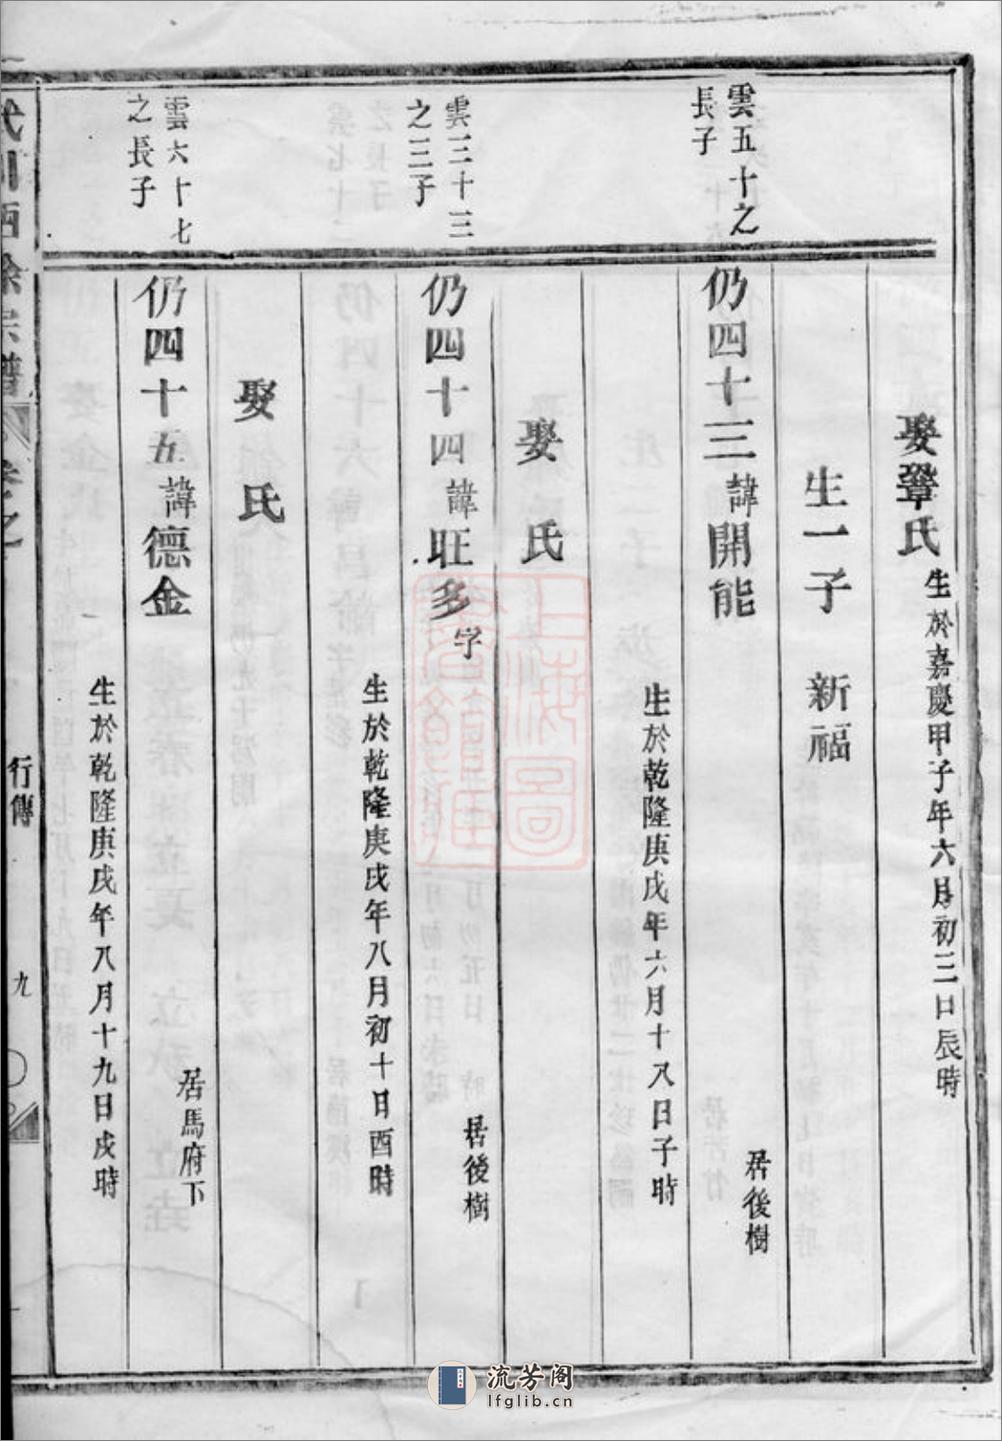 娶鞏氏 生於嘉慶甲子年六月初三日辰時
生一子 新福
雲五十之
長子
仍四十三諱開能 居後樹
生於乾隆庚戌年六月十八日子時
娶 氏
雲三十三
之三子
仍四十四諱旺多字 居後樹
生於乾隆庚戌年八月初十日酉時
娶 氏
雲六十七
之長子
仍四十五諱德金 居馬府下
生於乾隆庚戌年八月十九日戌時
西徐宗譜 卷之
行傳
九
上海圖書館藏
流芳阁
lfglib.cn